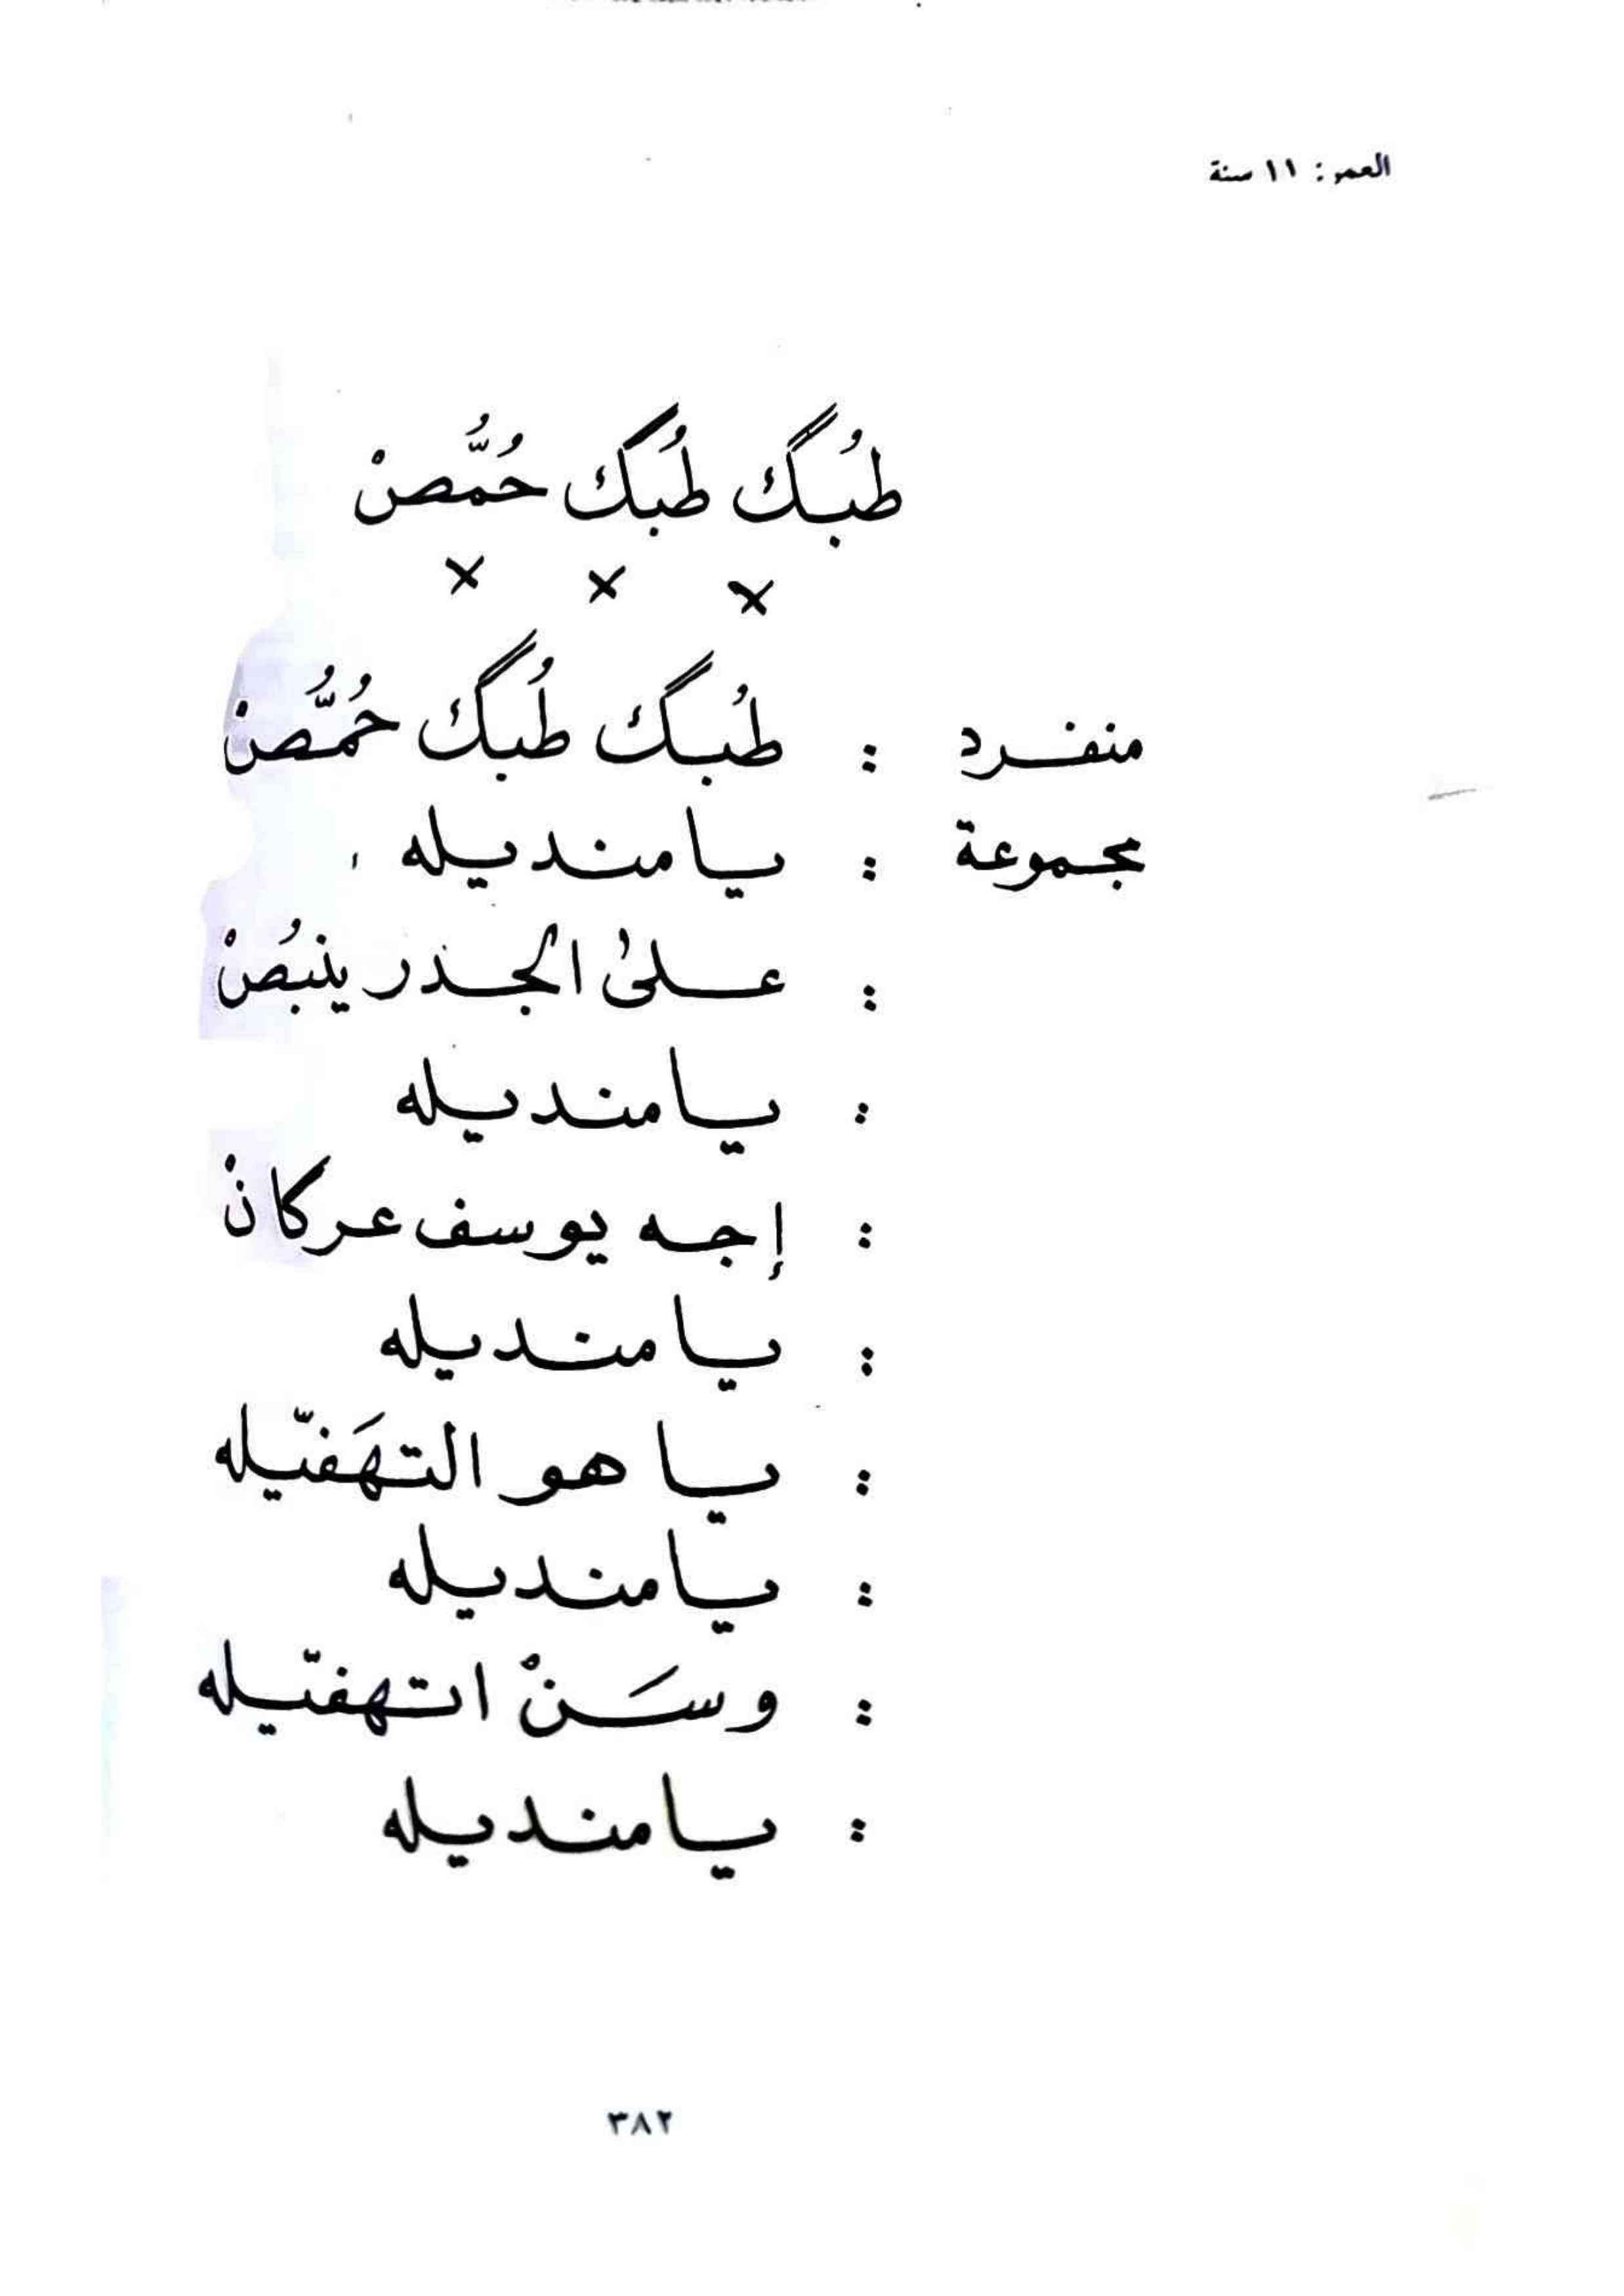 العمر: ١١ سنة
طبُگ طُبگ حُمُّصْ
× × ×
منفرد : طبُگ طُبگ حُمُّصْ
مجموعة : يا منديله
: على الجذر ينبُصْ
: يا منديله
: إجه يوسف عركانْ
: يا منديله
: يا هو التهَفّيله
: يا منديله
: وسَنْ اتهفّيله
: يا منديله
٣٨٢